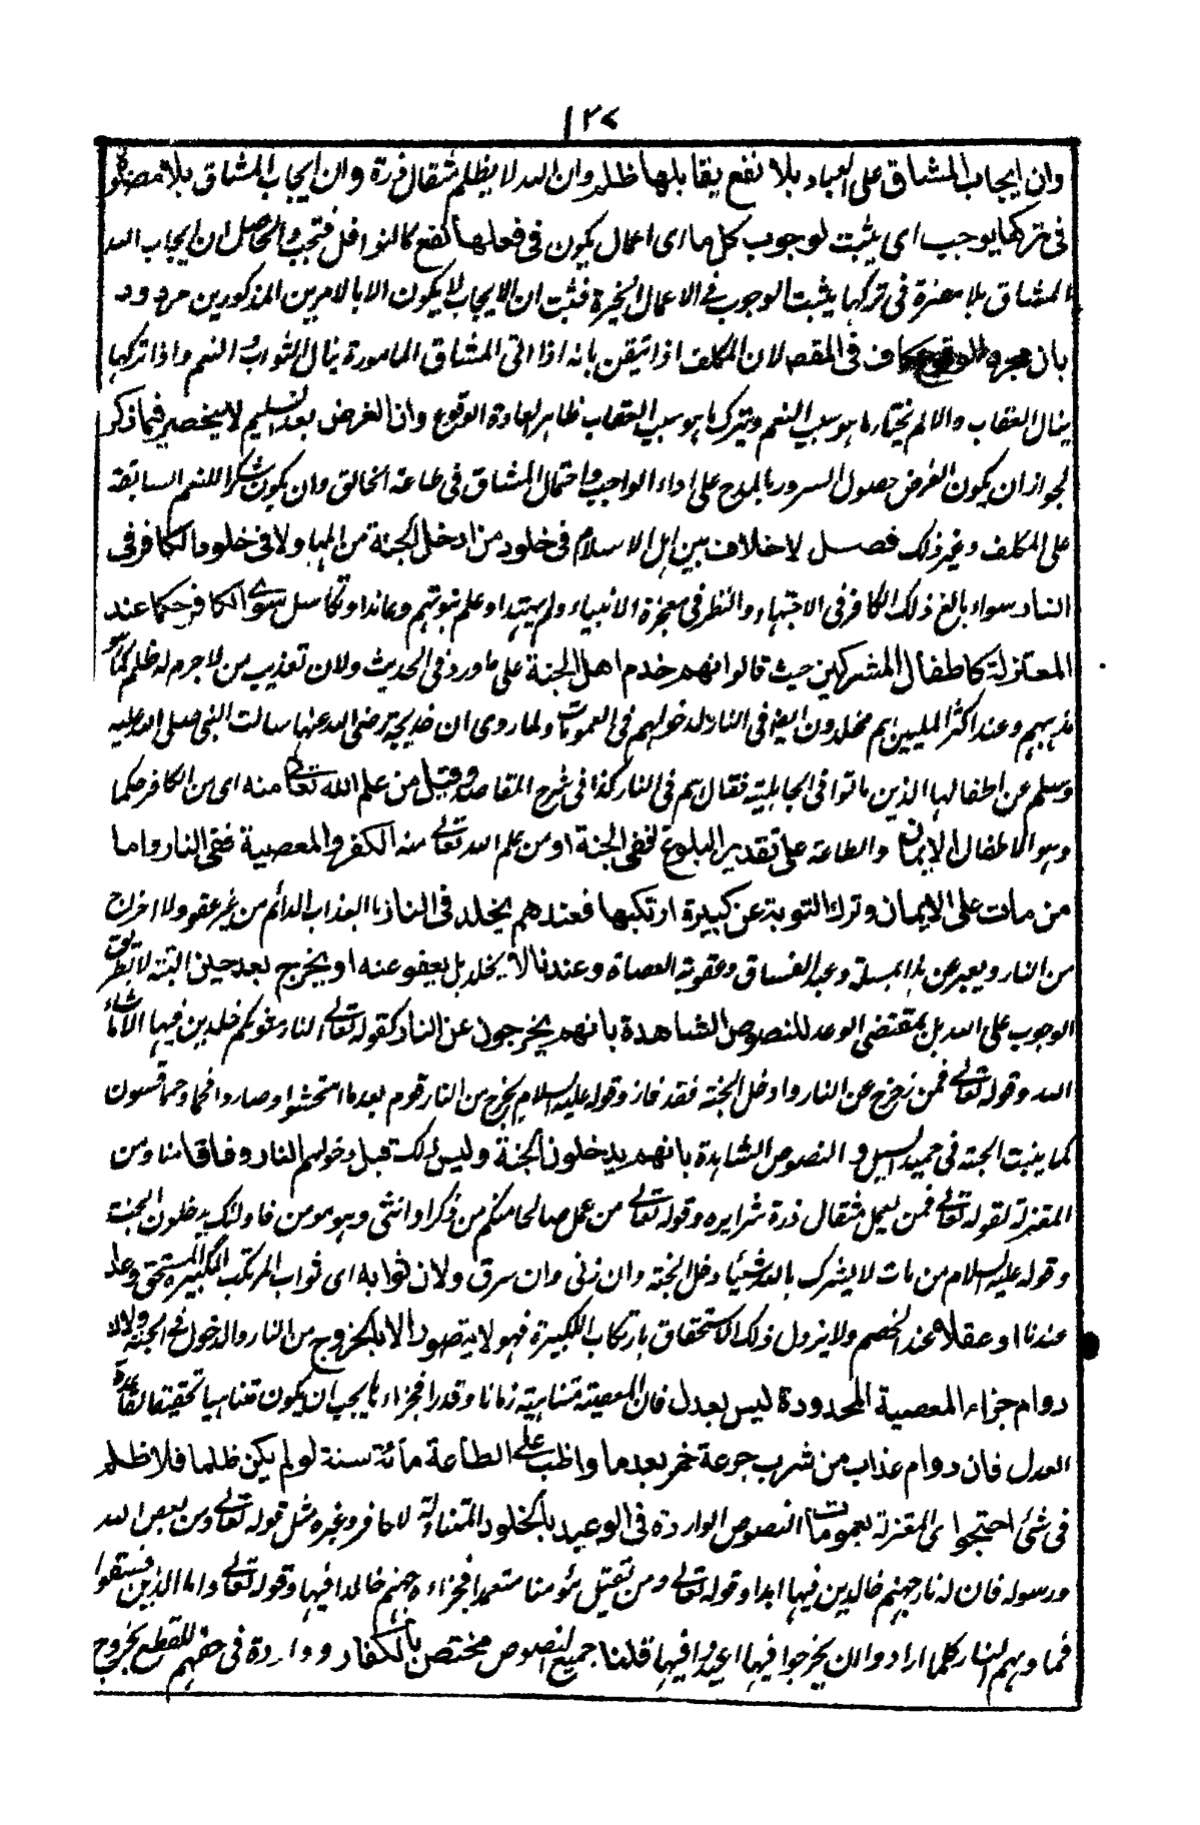 ١٣٧
وان ايجاب المشاق على العباد بلا نفع يقابلها ظلم وان الله لا يظلم مثقال ذرة وان ايجاب المشاق بلا مضرة
فى تركها يوجب اى يثبت لوجوب كل ما اى اعمال يكون فى فعلها نفع كالنوافل فتجب والحاصل ان ايجاب الله
المشاق بلا مضرة فى تركها يثبت الوجوب فى الاعمال الخيرة فثبت ان الايجاب لا يكون الا بالامرين المذكورين مردود
بان فى المقصد لان المكلف اذا تيقن بانه اذا اتى المشاق المامورة ينال الثواب والنعم واذا تركها
ينال العقاب والالم يختار ما هو سبب النعم ويترك ما هو سبب العقاب ظاهر لعادة الوقوع وان الغرض بعد التسليم لا ينحصر فيما ذكر
لجواز ان يكون الغرض حصول السرور بالمدح على اداء الواجب واحتمال المشاق فى طاعة الخالق وان يكون شكرا للنعم السابقة
على المكلف وغير ذلك فصل لا خلاف بين اهل الاسلام فى خلود من ادخل الجنة من اهلها ولا فى خلود الكافر فى
النار سواء بالغ ذلك الكافر فى الاجتهاد والنظر فى معجزة الانبياء ولم يهتد او علم نبوتهم وعاند او تكاسل سوى الكافر حكما عند
المعتزلة كاطفال المشركين حيث قالوا انهم خدم اهل الجنة على ما ورد فى الحديث ولان تعذيب من لا جرم له ظلم كما هو
مذهبهم وعند اكثر المليين هم مخلدون ايضا فى النار لدخولهم فى العمومات ولما روى ان خديجة رضى الله عنها سالت النبى صلى الله عليه
وسلم عن اطفالها الذين ماتوا فى الجاهلية فقال هم فى النار كذا فى شرح المقاصد وقيل من علم الله تعالى منه اى من الكافر حكما
وهو الاطفال الايمان والطاعة على تقدير البلوغ ففى الجنة او من علم الله تعالى منه الكفر والمعصية ففى النار واما
من مات على الايمان وترك التوبة عن كبيرة ارتكبها فعندهم يخلد فى النار با العذاب الدائم من غير عفو ولا اخراج
من النار ويعبر عن هذا المسئلة وعيد الفساق وعقوبة العصاة وعندنا لا يخلد بل يعفو عنه او يخرج بعد حين البتة لا بطريق
الوجوب على الله بل بمقتضى الوعد للنصوص الشاهدة بانهم يخرجون عن النار كقوله تعالى النار مثوكم خلدين فيها الا ما شاء
الله وقوله تعالى فمن زحزح عن النار وادخل الجنة فقد فاز وقوله عليه السلام يخرج من النار قوم بعد ما امتحشوا وصاروا فحما وحمما فينبتون
كما ينبت الحبة فى حميل السيل و النصوص الشاهدة بانهم يدخلون الجنة وليس ذلك قبل دخولهم النار وفاقا منا ومن
المعتزلة لقوله تعالى فمن يعمل مثقال ذرة شرا يره وقوله تعالى من عمل صالحا منكم من ذكر او انثى وهو مومن فاولئك يدخلون الجنة
وقوله عليه السلام من مات لا يشرك بالله شيئا دخل الجنة وان زنى وان سرق ولان ثوابه اى ثواب المرتكب الكبيرة المستحق وعدا
عندنا او عقلا عند الخصم ولا يزول ذلك الاستحقاق بارتكاب الكبيرة فهو لا يتصور الا بالخروج من النار والدخول فى الجنة ولان
دوام جزاء المعصية المحدودة ليس بعدل فان المعصية متناهية زمانا وقدرا فجزاءها يجب ان يكون متناهيا تحقيقا لقاعدة
العدل فان دوام عذاب من شرب جرعة خمر بعد ما واظب على الطاعة مائة سنة لو لم يكن ظلما فلا ظلم
فى شئ احتجوا اى المعتزلة بعمومات النصوص الواردة فى الوعيد بالخلود المتناولة لكافر وغيره مثل قوله تعالى ومن يعص الله
ورسوله فان له نار جهنم خالدين فيها ابدا وقوله تعالى ومن يقتل مؤمنا متعمدا فجزاءه جهنم خالدا فيها وقوله تعالى واما الذين فسقوا
فماوىهم النار كلما ارادوا ان يخرجوا فيها اعيدوا فيها قلنا جميع النصوص مختص بالكفار وواردة فى حقهم للقطع بخروج